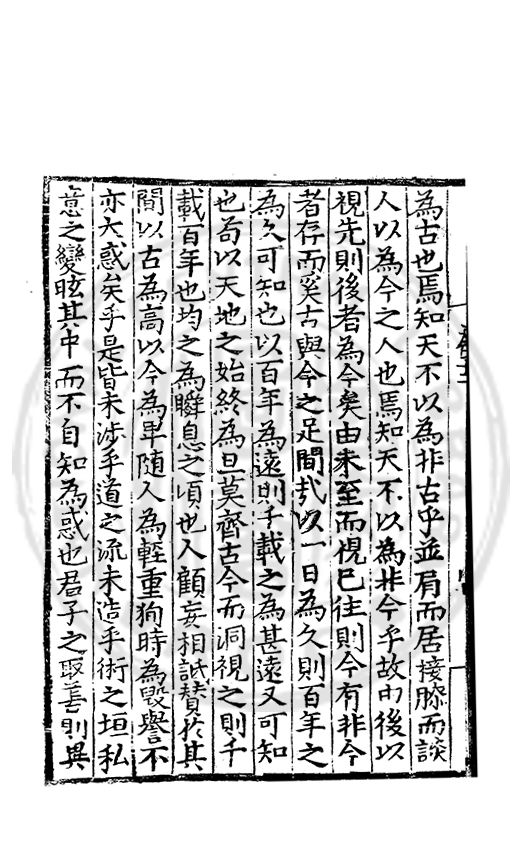 為古也焉知天不以為非古乎並肩而居接膝而談
人以為今之人也焉知天不以為非今乎故由後以
視先則後者為今矣由未至而視已往則今有非今
者存而奚古與今之足間哉以一日為久則百年之
為久可知也以百年為遠則千載之為甚遠又可知
也茍以天地之始終為旦莫齊古今而洞視之則千
載百年也均之為瞬息之頃也人顧妄相詆贊於其
間以古為高以今為卑隨人為輕重狥時為毀譽不
亦大惑矣乎是皆未涉乎道之流未造乎術之垣私
意之變眩其中而不自知為惑也君子之取善則異